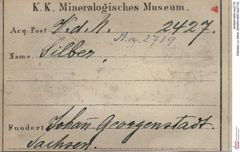 K.K. Mineralogisches Museum.
Acq. Post V.d.N. 2427.
A.a. 2719
Name Silber.
Fundort Johann Georgenstadt.
Sachsen.